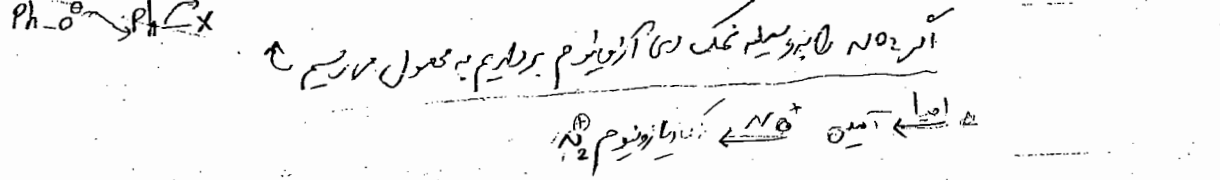 Ph-O⊖ Ph X
اگر NO2 را بوسیله نمک دی آزونیوم برداریم به محصول می رسیم
احیا آمین NO+ دیازونیوم N2⊕